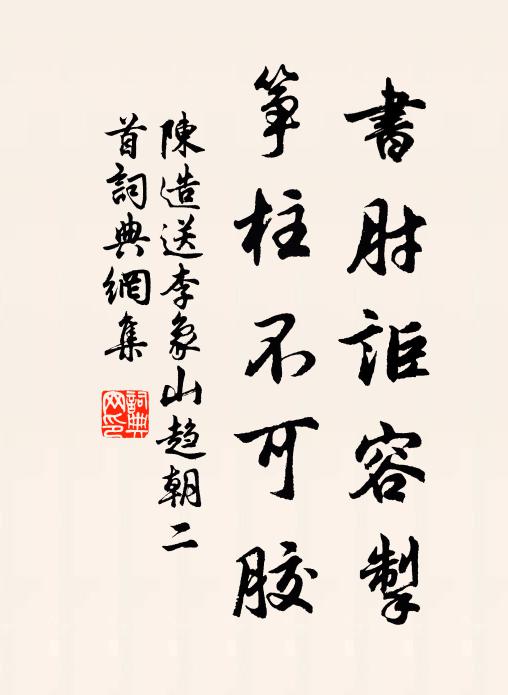 書肘詎容掣
箏柱不可膠
陳造送李象山趨朝二
首詞典網集
詞典
网印